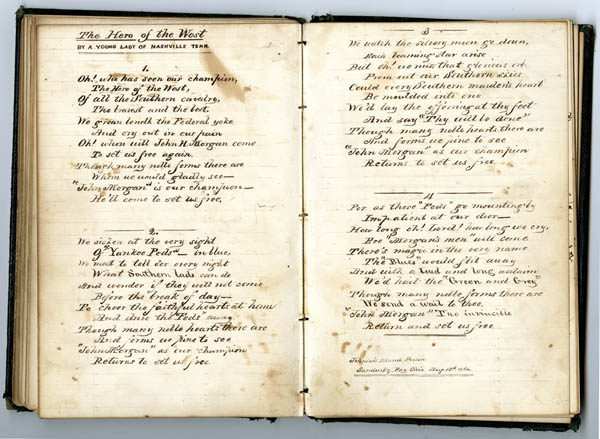 The Hero of the West
BY A YOUNG LADY OF NASHVILLE TENN.
1.
Oh! who has seen our champion,
The Hero of the West,
Of all the Southern cavalry,
The bravest and the best.
We groan beneath the Federal yoke,
And cry out in our pain
Oh! when will John H. Morgan come
To set us free again.
Though many noble forms there are
Whom we would gladly see—
"John Morgan" is our champion—
He'll come to set us free.
2.
We sicken at the very sight
Of "Yankee Feds" — in blue,
We want to tell over every night
What Southern lads can do
And wonder if they will not come
Before the break of day—
To cheer the faithful hearts at home
And drive the "Feds" away.
Though many noble hearts there are
And forms we pine to see
"John Morgan" as our champion
Returns to set us free.
3
We watch the silvery moon go down,
Each beaming star arise
But oh! we miss that glorious orb
From out our Southern skies
Could every Southern maiden's heart
Be moulded into one
We'd lay the offering at thy feet
And say "Thy will be done"
Though many noble hearts there are
And forms we pine to see
"John Morgan" as our champion
Returns to set us free.
4
For as these "Feds" go mounting by
Impatient at our door—
How long oh! Lord! how long we cry,
Are "Morgan's men" will come
There's magic in the very name
The "Blues" would flit away
And with a loud and long acclaim
We'd hail the "Green and Grey"
Though many noble forms there are
We send a wail to thee,
"John Morgan" Two invincible
Return and set us free
Johnson's Island Prison
Sandusky Bay Ohio